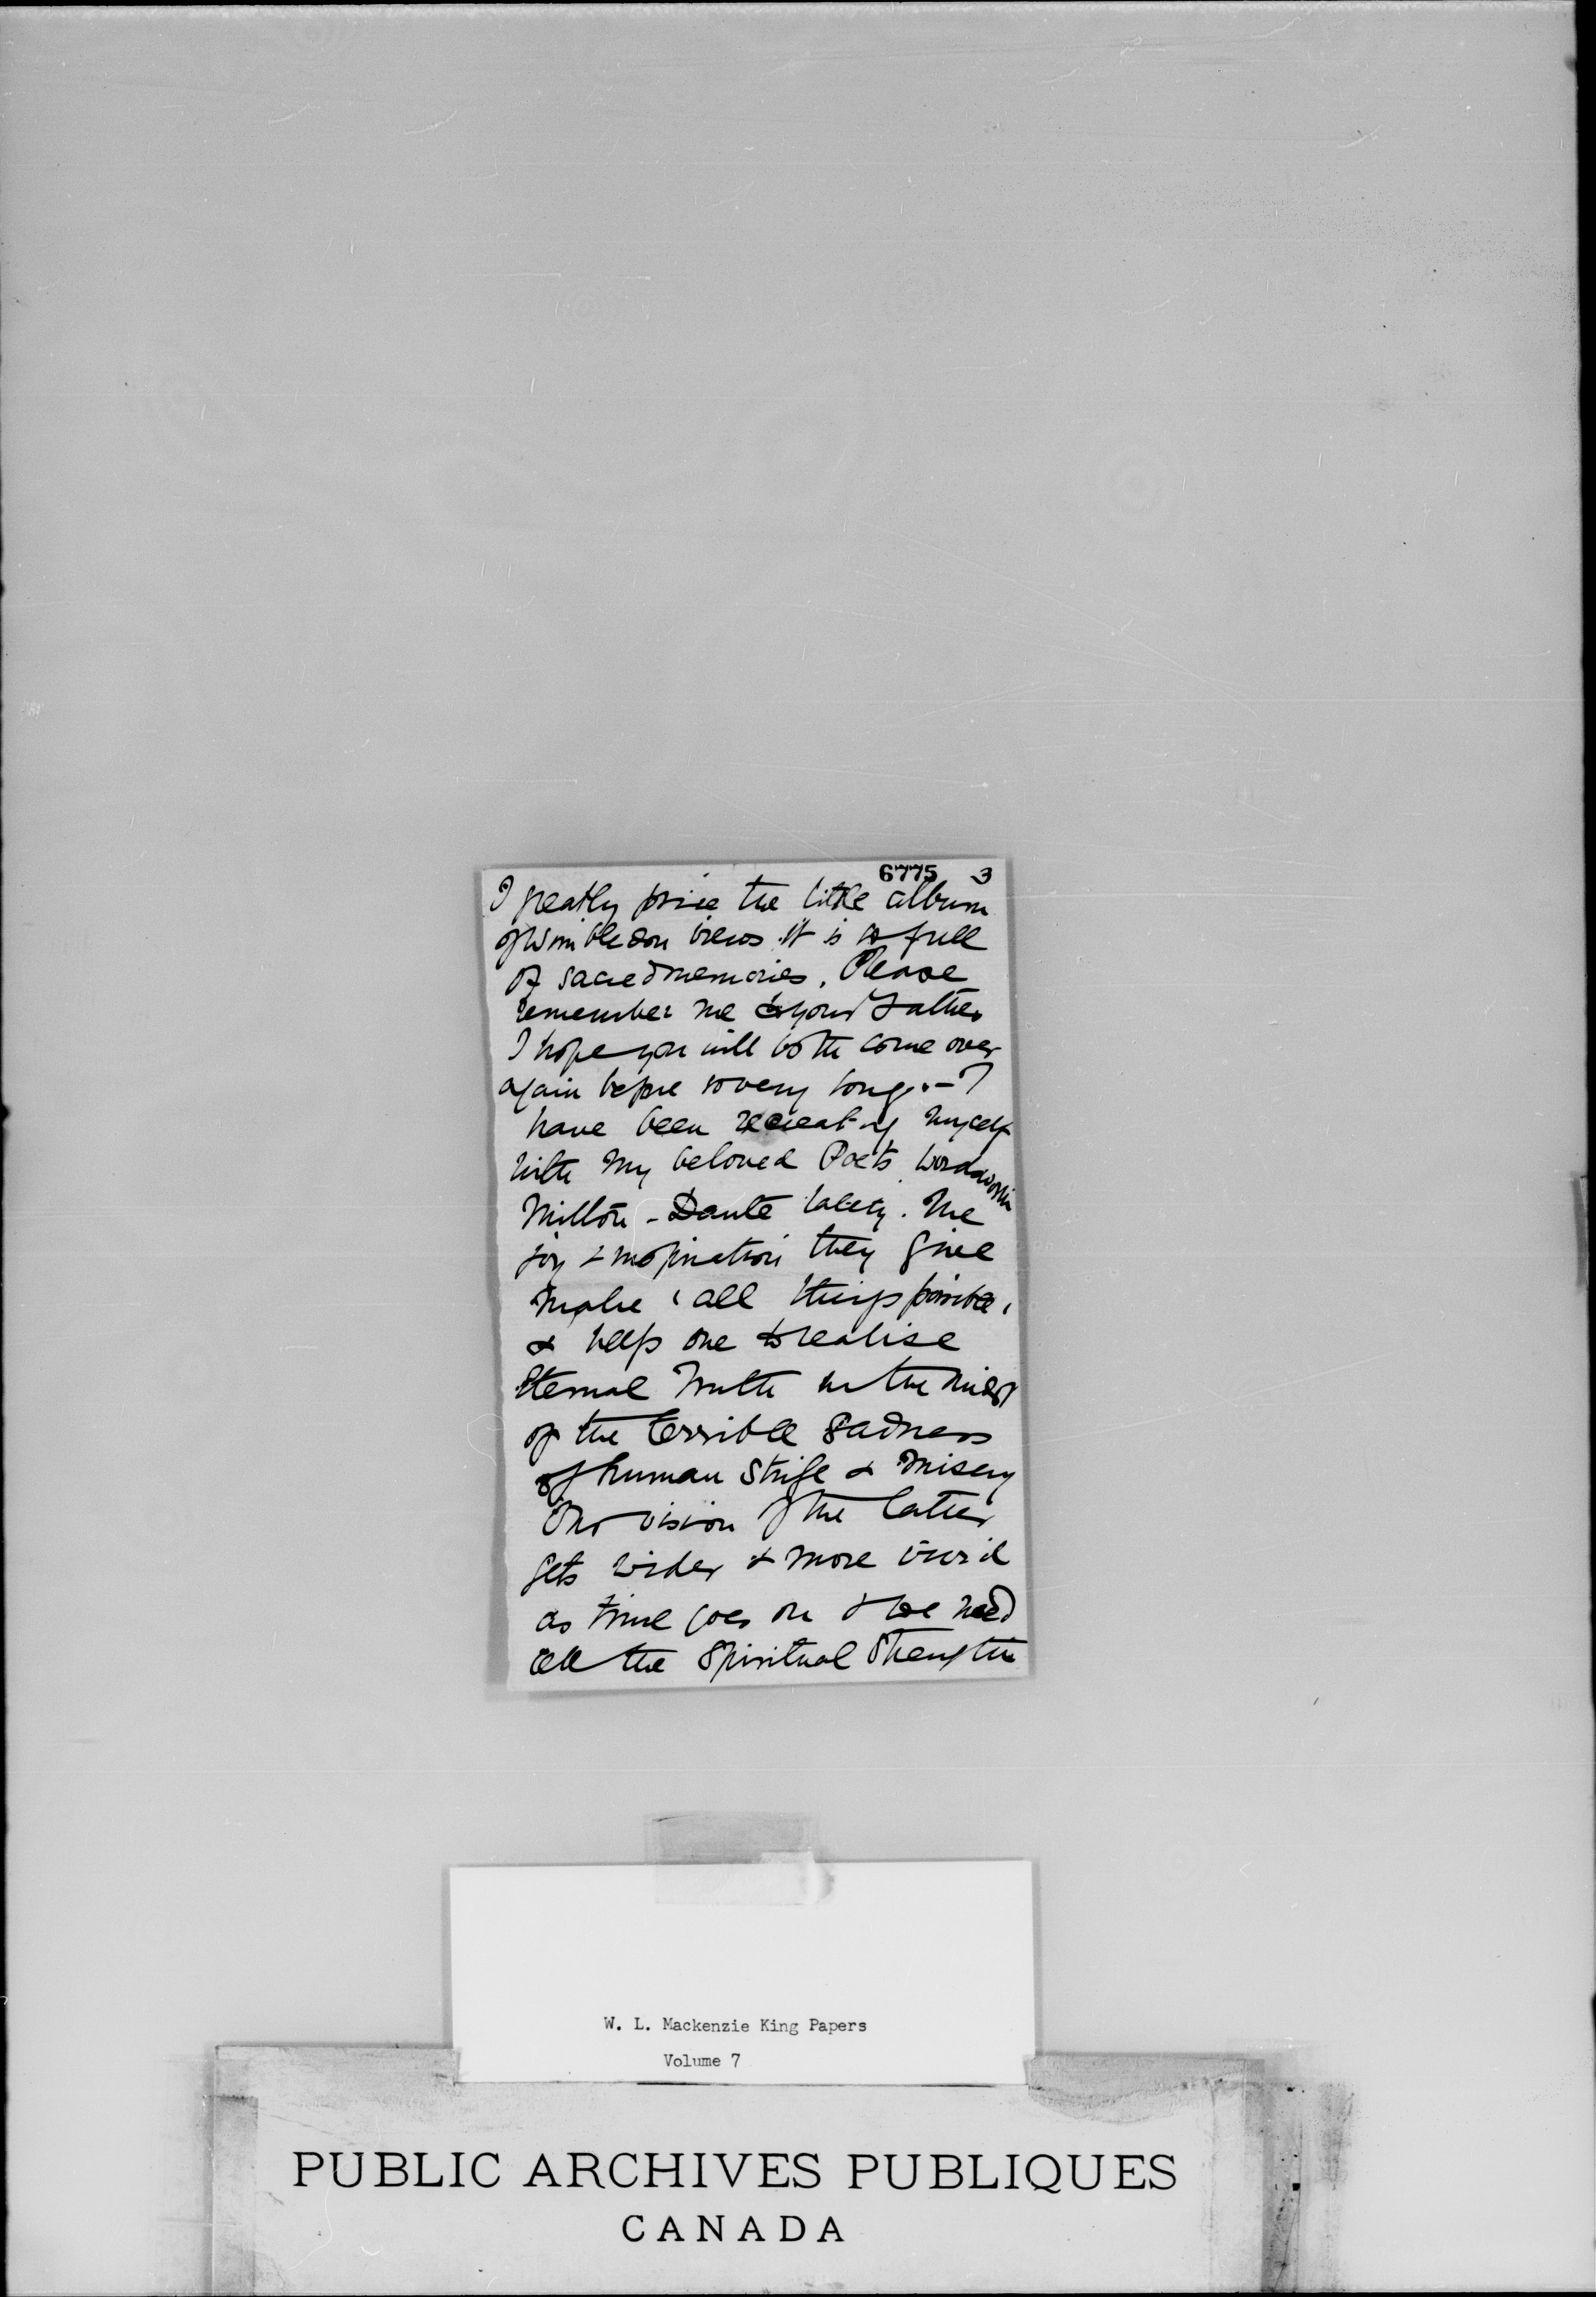 6775 3
I greatly prize the little album
of Wimbledon views. It is so full
of sacred memories. Please
remember me to your Father
I hope you will both come over
again before so very long. - I
have been recreating myself
with my beloved Poets Wordsworth
Milton - Dante lately. The
joy & inspiration they give
make 'all things possible,
& helps one to realise
Eternal Truth in the midst
of the terrible sadness
of human strife & misery
Our vision of the latter
gets wider & more vivid
as time goes on & we need
all the spiritual strength
W. L. Mackenzie King Papers
Volume 7
PUBLIC ARCHIVES PUBLIQUES
CANADA